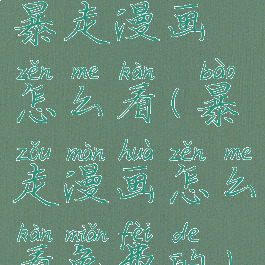 暴走漫画
zěn me kàn bào
怎么看(暴
zǒu màn huà zěn me
走漫画怎么
kàn miǎn fèi de
看免费的)